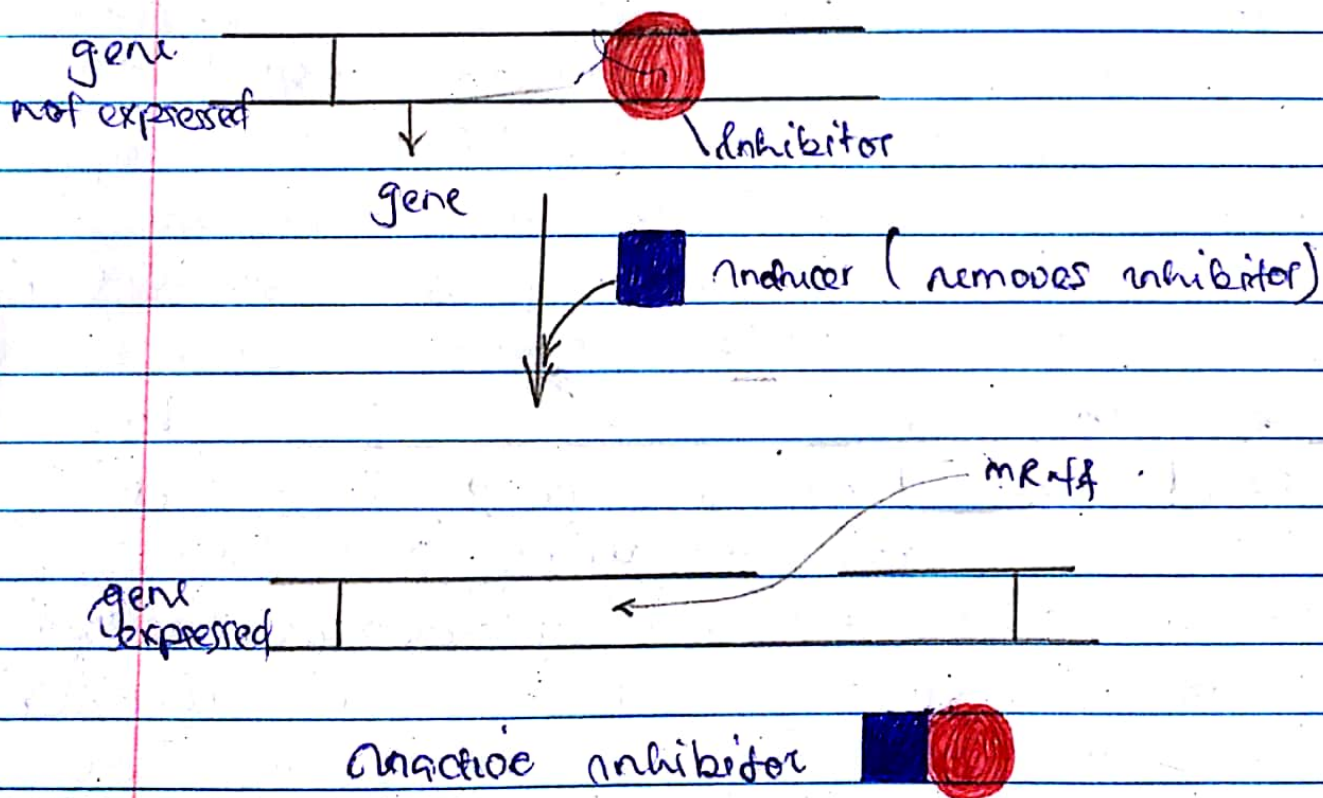 gene
not expressed
Inhibitor
gene
inducer ( removes inhibitor)
mRNA
gene
expressed
inactive inhibitor